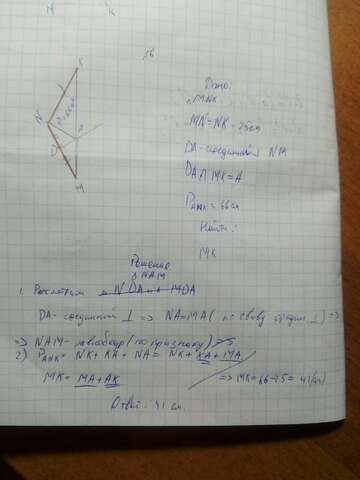 N
K
56
K
N
P=66см
A
D
M
Дано:
△MNK
MN=NK=25см
DA-срединный NM
DA∩MK=A
P_ANK=66см
Найти:
MK
Решение
△NAM
1. Рассмотрим
DA-срединный ⊥ => NA=MA (по свойству средин ⊥) =>
=> NAM-равнобедр (по признаку)
2) P_ANK= NK+KA+NA= NK+KA+MA
MK= MA+AK => MK=66-25=41(см)
Ответ: 41 см.